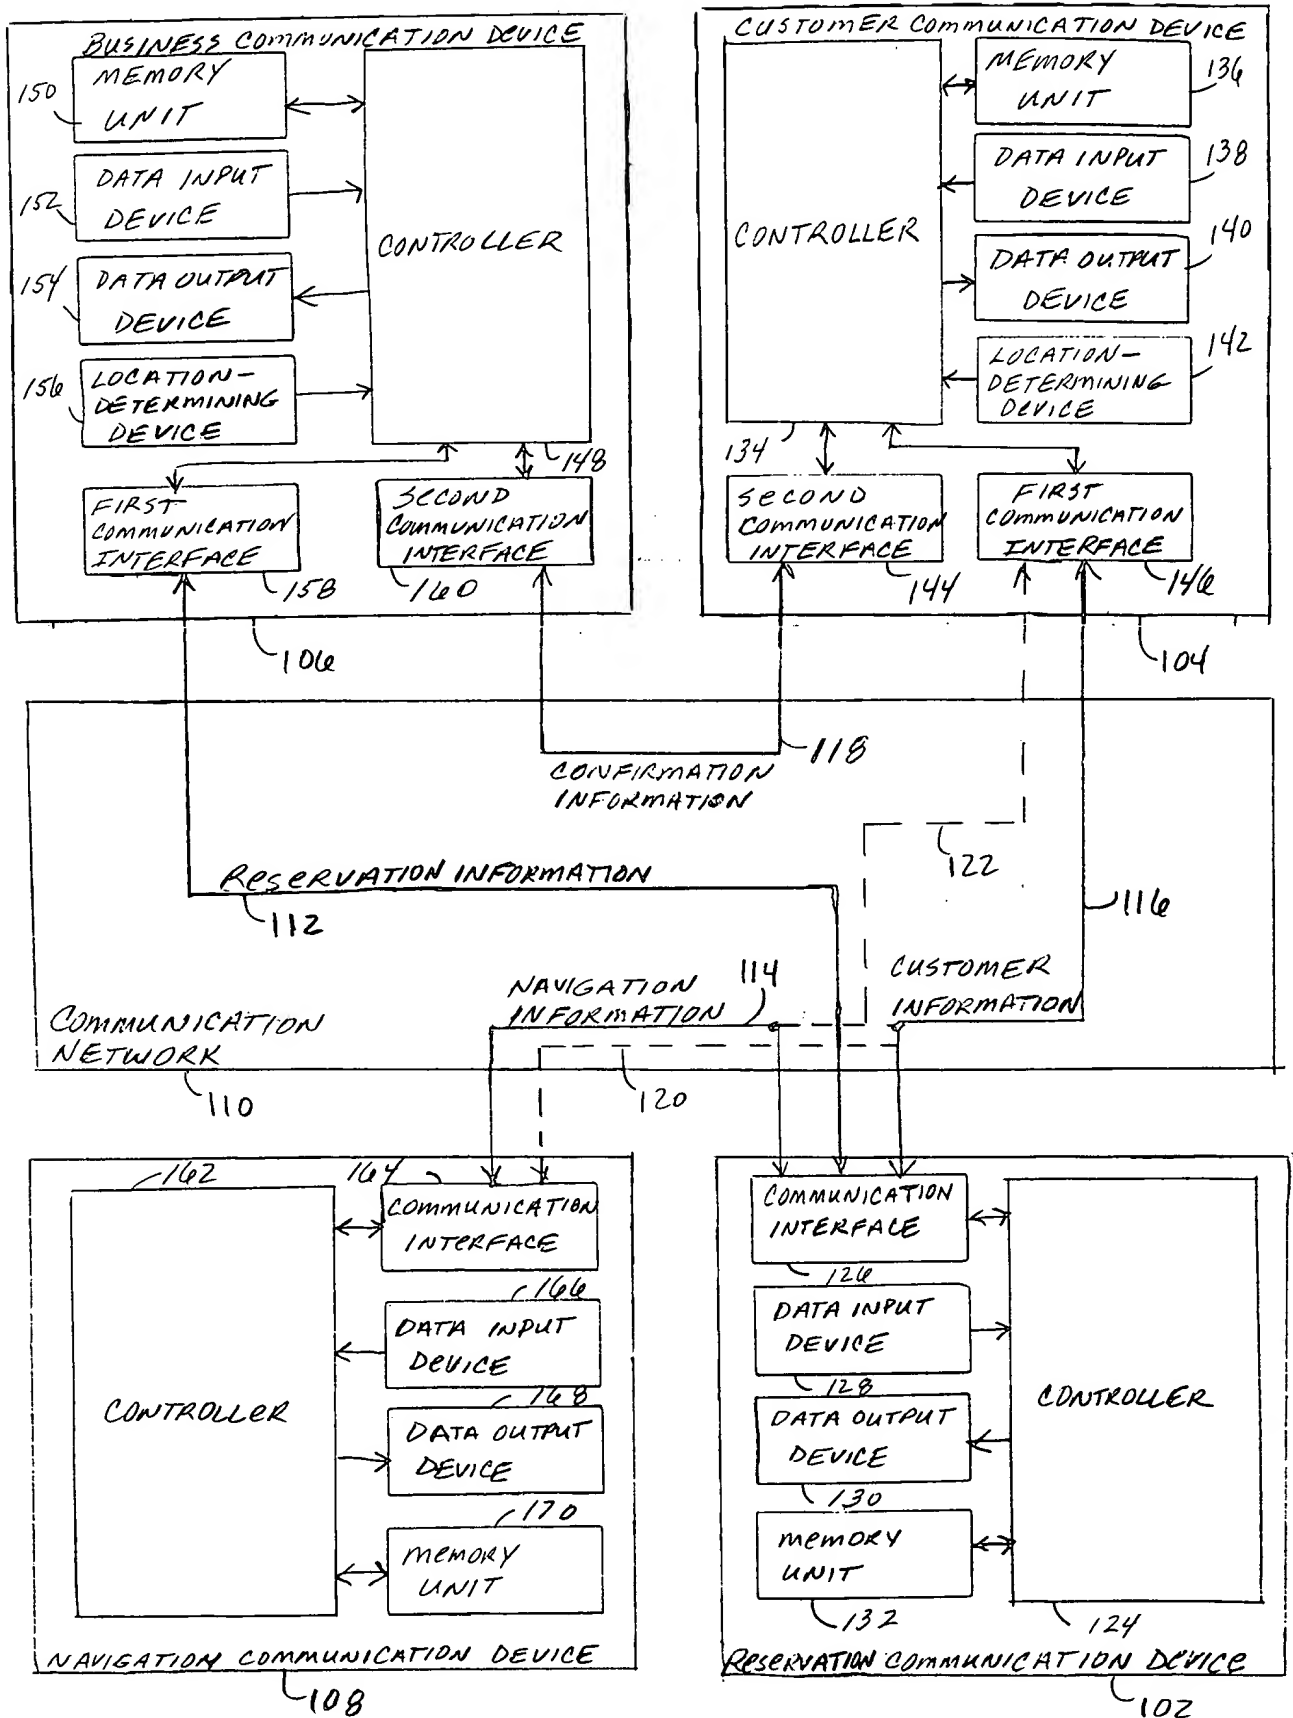 BUSINESS COMMUNICATION DEVICE
MEMORY
UNIT
150
DATA INPUT
DEVICE
152
CONTROLLER
154
DATA OUTPUT
DEVICE
156
LOCATION-
DETERMINING
DEVICE
148
FIRST
COMMUNICATION
INTERFACE
158
SECOND
COMMUNICATION
INTERFACE
160
106
CUSTOMER COMMUNICATION DEVICE
MEMORY
UNIT
136
DATA INPUT
DEVICE
138
CONTROLLER
140
DATA OUTPUT
DEVICE
142
LOCATION-
DETERMINING
DEVICE
134
SECOND
COMMUNICATION
INTERFACE
144
FIRST
COMMUNICATION
INTERFACE
146
104
118
CONFIRMATION
INFORMATION
122
RESERVATION INFORMATION
112
116
NAVIGATION
INFORMATION
114
CUSTOMER
INFORMATION
COMMUNICATION
NETWORK
110
120
162
164
COMMUNICATION
INTERFACE
166
DATA INPUT
DEVICE
168
CONTROLLER
DATA OUTPUT
DEVICE
170
MEMORY
UNIT
NAVIGATION COMMUNICATION DEVICE
108
COMMUNICATION
INTERFACE
126
DATA INPUT
DEVICE
128
DATA OUTPUT
DEVICE
CONTROLLER
130
MEMORY
UNIT
132
124
RESERVATION COMMUNICATION DEVICE
102